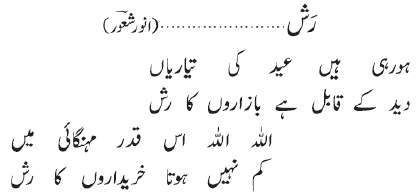 رَش ....................... (انور شعورؔ)
ہورہی ہیں عید کی تیاریاں
دید کے قابل ہے بازاروں کا رش
اللہ اللہ اس قدر مہنگائی میں
کم نہیں ہوتا خریداروں کا رش